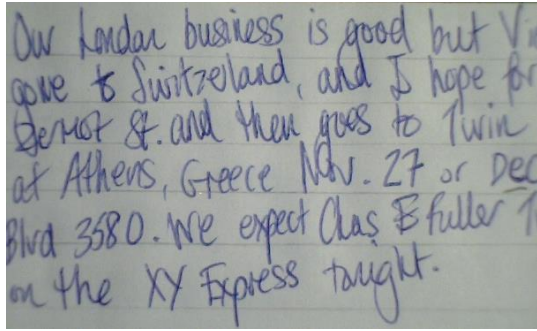 Our London business is good but Vi
gone to Switzerland, and I hope for
Dermot St. and then goes to Twin
at Athens, Greece Nov. 27 or Dec
Blvd 3580. We expect Chas E fuller T
on the XY Express taught.